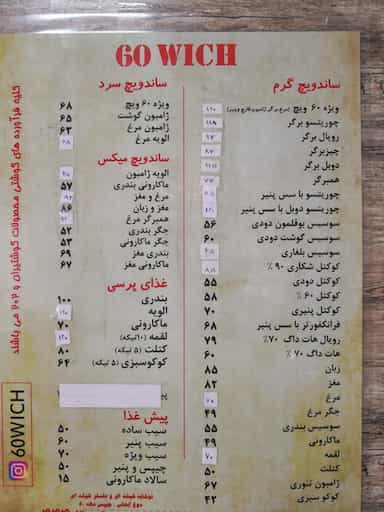 60 WICH
ساندویچ گرم
ویژه ۶۰ ویچ
چوریتسو برگر
رویال برگر
چیزبرگر
دوبل برگر
همبرگر
چوریتسو با سس پنیر
چوریتسو دوبل با سس پنیر
سوسیس بوقلمون دودی ۵۶
سوسیس گوشت دودی ۶۰
سوسیس بلغاری
کوکتل شکاری ۹۰ ٪
کوکتل دودی ۵۵
کوکتل ۶۰ ٪ ۵۸
کوکتل پنیری ۷۰
فرانکفورتر با سس پنیر ۶۸
رویال هات داگ ۷۰٪ ۷۹
هات داگ ۷۰ ٪ ۶۰
زبان ۸۵
مغز ۸۲
مرغ
جگر مرغ ۴۹
سوسیس بندری ۵۵
ماکارونی ۴۹
لقمه ۷۰
کتلت ۵۰
ژامبون تنوری ۶۷
کوکو سبزی ۴۲
ساندویچ سرد
ویژه ۶۰ ویچ ۶۸
ژامبون گوشت ۶۵
ژامبون مرغ ۶۳
الویه مرغ
ساندویچ میکس
الویه ژامبون
ماکارونی بندری ۵۷
مرغ و مغز
مغز و زبان ۸۶
همبرگر مرغ
جگر بندری ۵۲
جگر ماکارونی ۵۳
بندری مغز ۶۹
ماکارونی مغز ۶۷
غذای پرسی
بندری ۱۰۰
الویه
ماکارونی ۷۰
لقمه (۱۰تیکه)
کتلت (۵ تیکه) ۸۰
کوکوسبزی (۵ تیکه) ۶۴
پیش غذا
سیب ساده ۵۰
سیب پنیر ۶۰
سیب ویژه ۷۰
چیپس و پنیر ۵۰
سالاد ماکارونی ۱۵
کلیه فرآورده های گوشتی محصولات گوشتیران و ۲۰۲ می باشند
60WICH